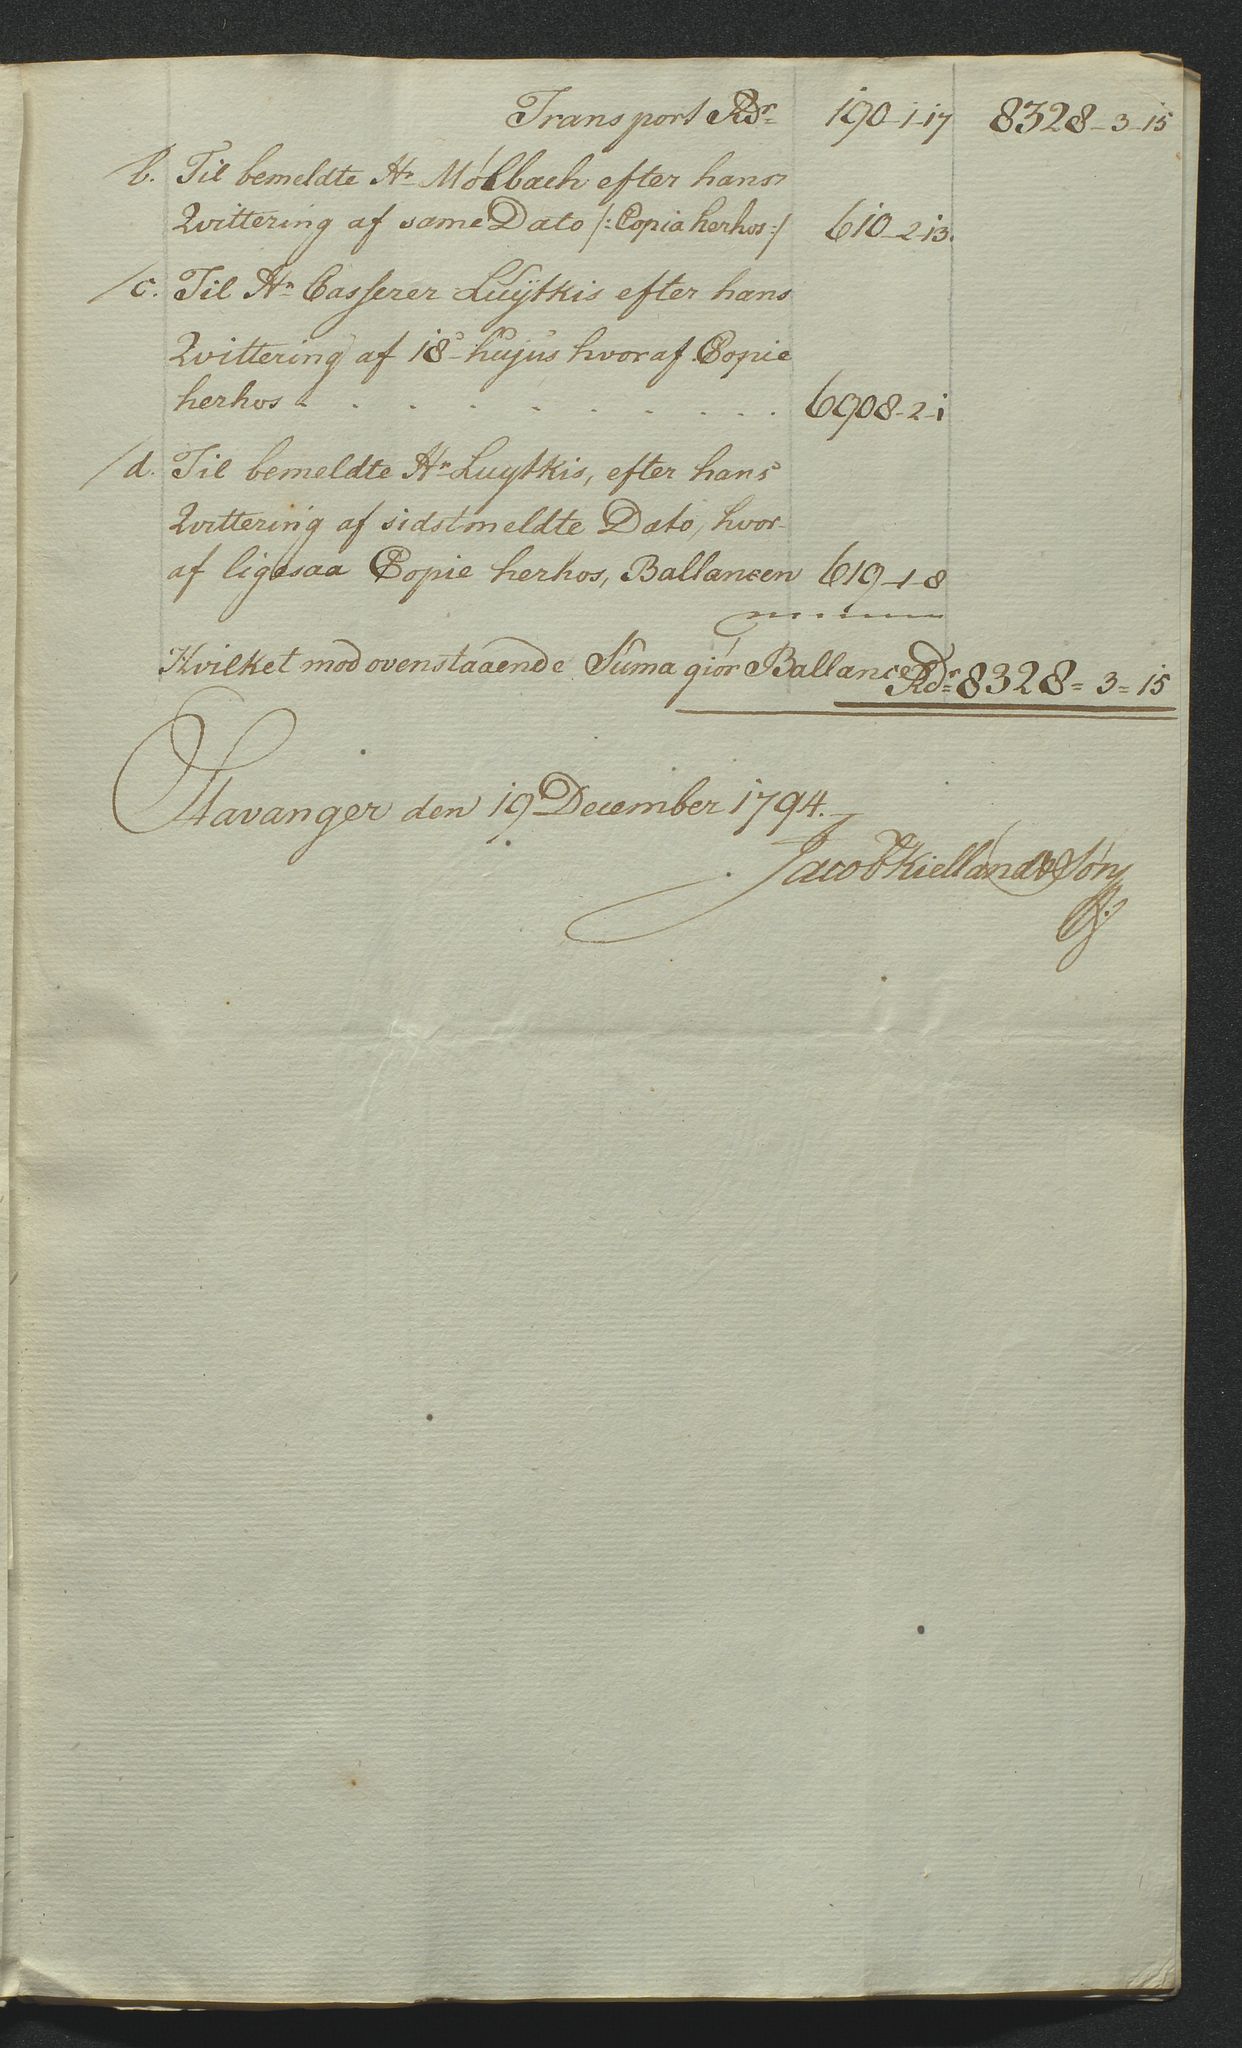 Transport Rdr 190-1-17 8328-3-15
b. Til bemeldte Hr Mólbach efter hans
Qvittering af same Dato /: Copia herhos :/ 610-2-13.
/c. Til Hr Casserer Luÿtkis efter hans
Qvittering af 18de hujus hvoraf Copie
herhos - . . . . . . . . . 6908-2-1
/d. Til bemeldte Hr Luytkis, efter hans
Qvittering af sidstmeldte Dato, hvor-
af ligesaa Copie herhos, Ballancen 619-1-8
Hvilket mod ovenstaaende Suma giór Ballance Rdr 8328=3=15
Stavanger den 19 December 1794.
Jacob Kielland & Són